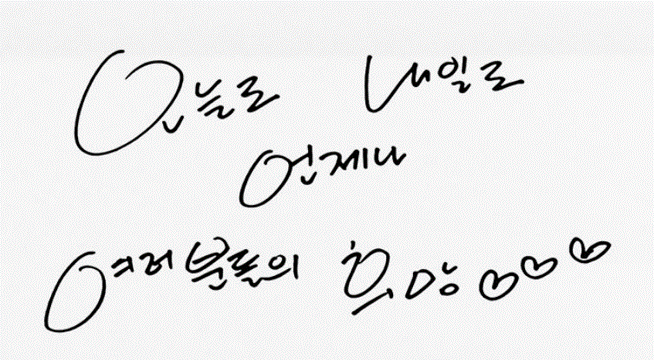 오늘도 내일도
언제나
여러분들의 희망♡♡♡